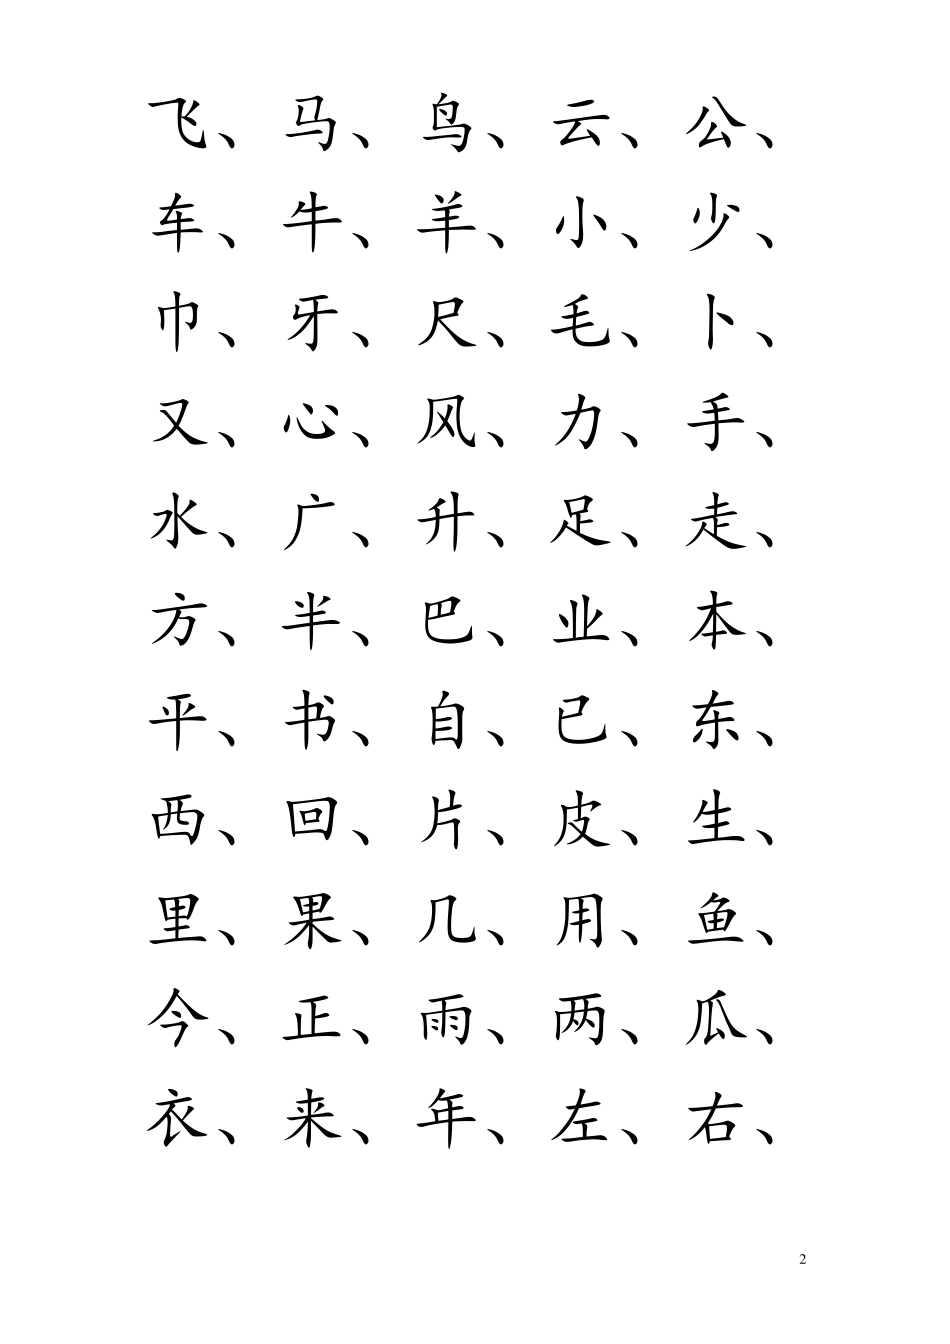 飞、马、鸟、云、公、
车、牛、羊、小、少、
巾、牙、尺、毛、卜、
又、心、风、力、手、
水、广、升、足、走、
方、半、巴、业、本、
平、书、自、已、东、
西、回、片、皮、生、
里、果、几、用、鱼、
今、正、雨、两、瓜、
衣、来、年、左、右、
2